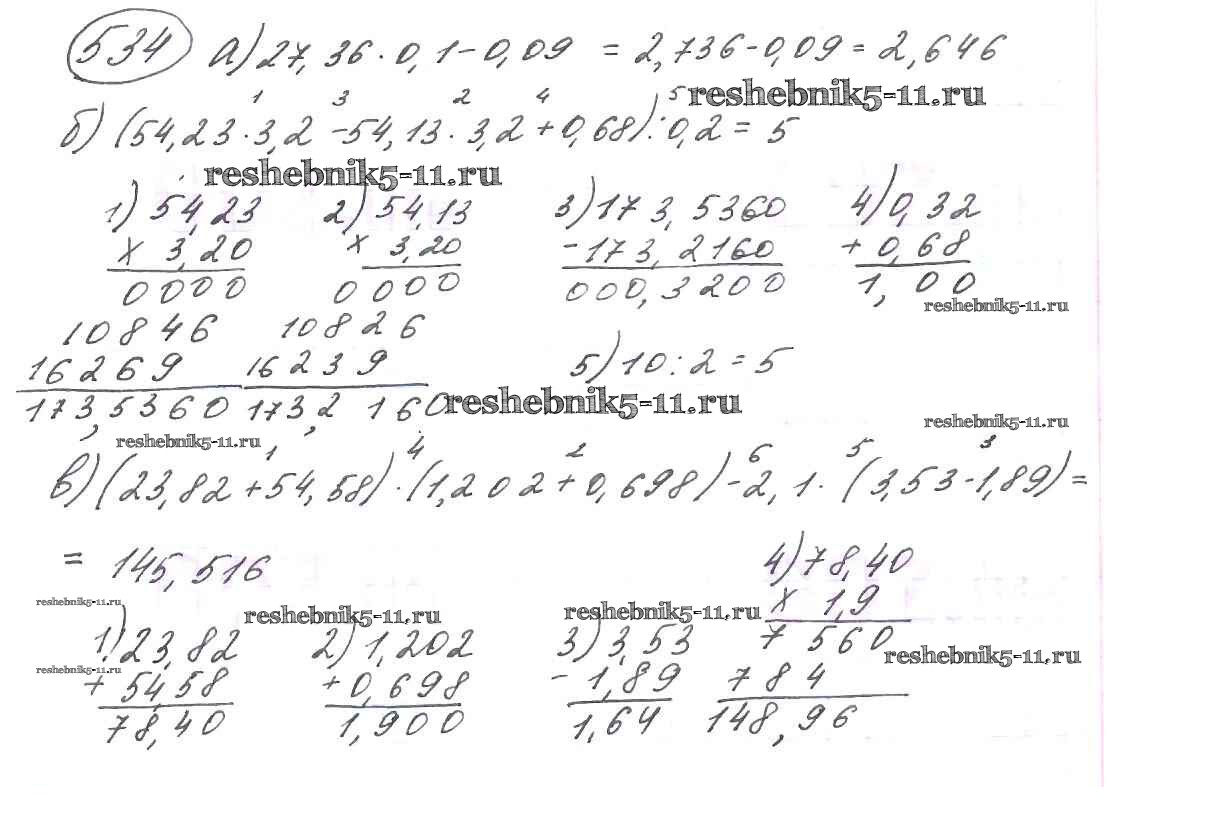 534 а) 27,36·0,1-0,09 = 2,736-0,09 = 2,646
reshebnik5-11.ru
1 3 2 4 5
б) (54,23·3,2 -54,13·3,2+0,68):0,2 = 5
reshebnik5-11.ru
1) 54,23 2) 54,13 3) 173,5360 4) 0,32
x 3,20 x 3,20 -173,2160 + 0,68
0000 0000 000,3200 1,00
reshebnik5-11.ru
10846 10826
16269 16239 5) 10:2 = 5
173,5360 173,2160
reshebnik5-11.ru
reshebnik5-11.ru
reshebnik5-11.ru
1 4 2 6 5 3
в) (23,82+54,58)·(1,202+0,698)-2,1·(3,53-1,89) =
= 145,516 4) 78,40
reshebnik5-11.ru reshebnik5-11.ru reshebnik5-11.ru x 1,9
1) 23,82 2) 1,202 3) 3,53 7 560
reshebnik5-11.ru
reshebnik5-11.ru + 54,58 + 0,698 - 1,89 784
78,40 1,900 1,64 148,96